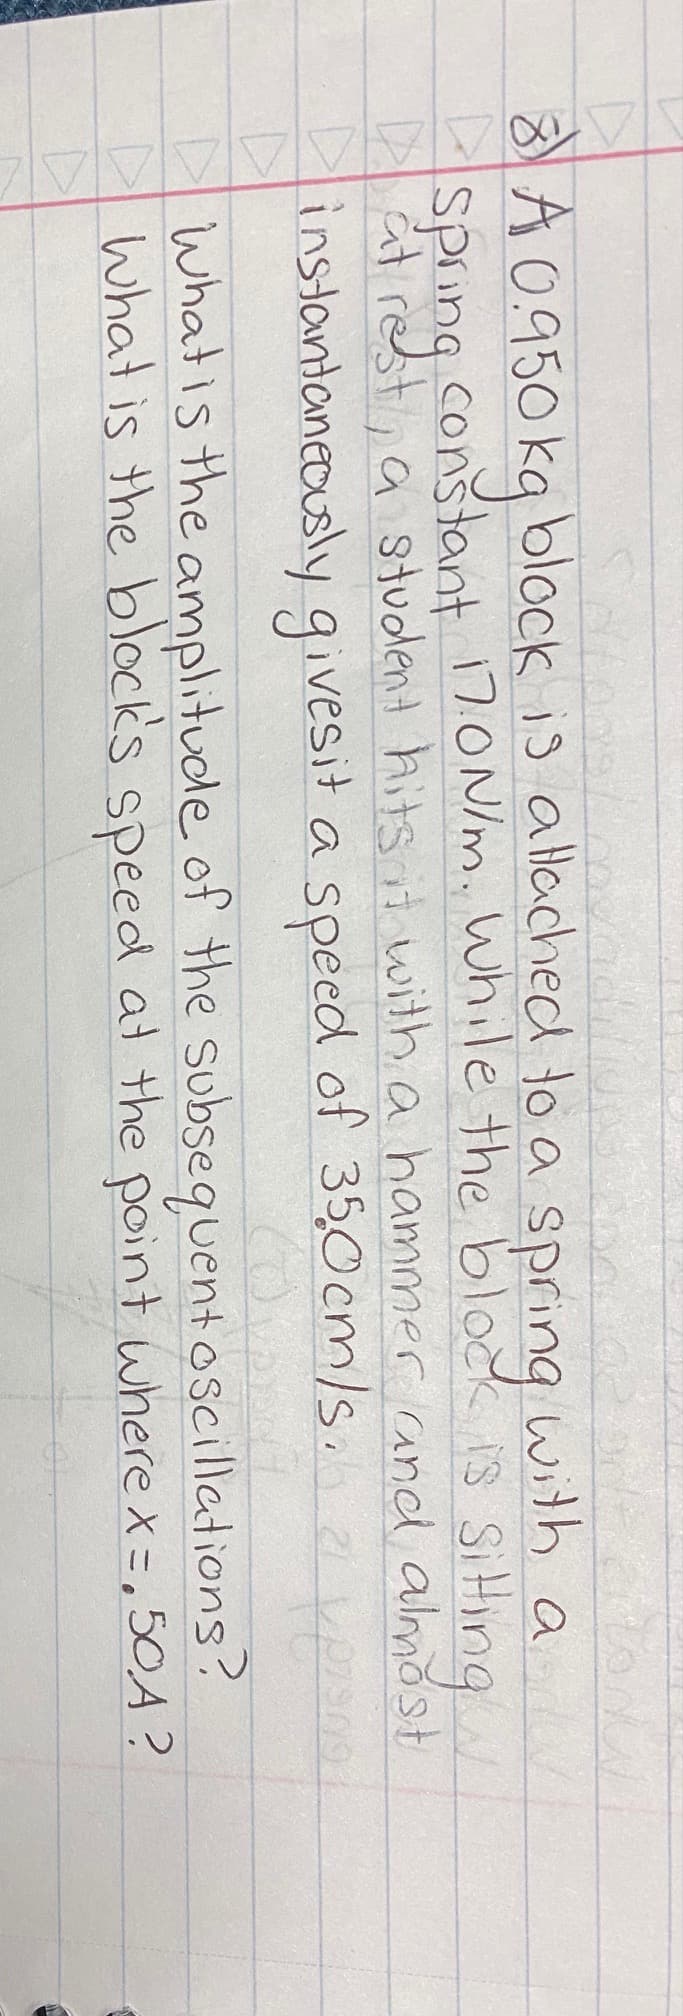 8) A 0.950 kg block is attached to a spring with a
spring constant 17.0 N/m. While the block is sitting
at rest, a student hits it with a hammer and almost
instantaneously gives it a speed of 35.0 cm/s.
What is the amplitude of the subsequent oscillations?
What is the block's speed at the point where x = .50A?